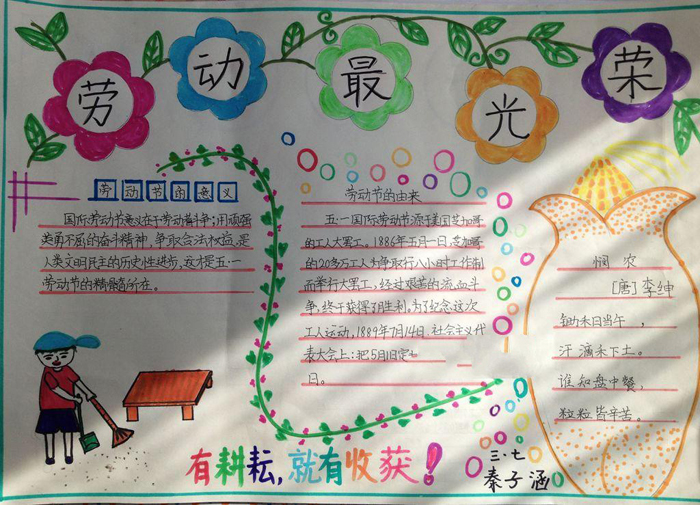 劳动最光荣
劳动节的意义
国际劳动节意义在于劳动者斗争;用顽强
英勇不屈的奋斗精神,争取合法权益,是
人类文明民主的历史性进步,这才是五·一
劳动节的精髓所在。
劳动节的由来
五·一国际劳动节源于美国芝加哥
的工人大罢工。1886年五月一日,芝加哥
的20多万工人为争取行八小时工作制
而举行大罢工,经过艰苦的流血斗
争,终于获得了胜利。为了纪念这次
工人运动,1889年7月14日,社会主义代
表大会上:把5月1日定
日。
悯农
[唐]李绅
锄禾日当午,
汗滴禾下土。
谁知盘中餐,
粒粒皆辛苦。
有耕耘,就有收获!
三·七
秦子涵